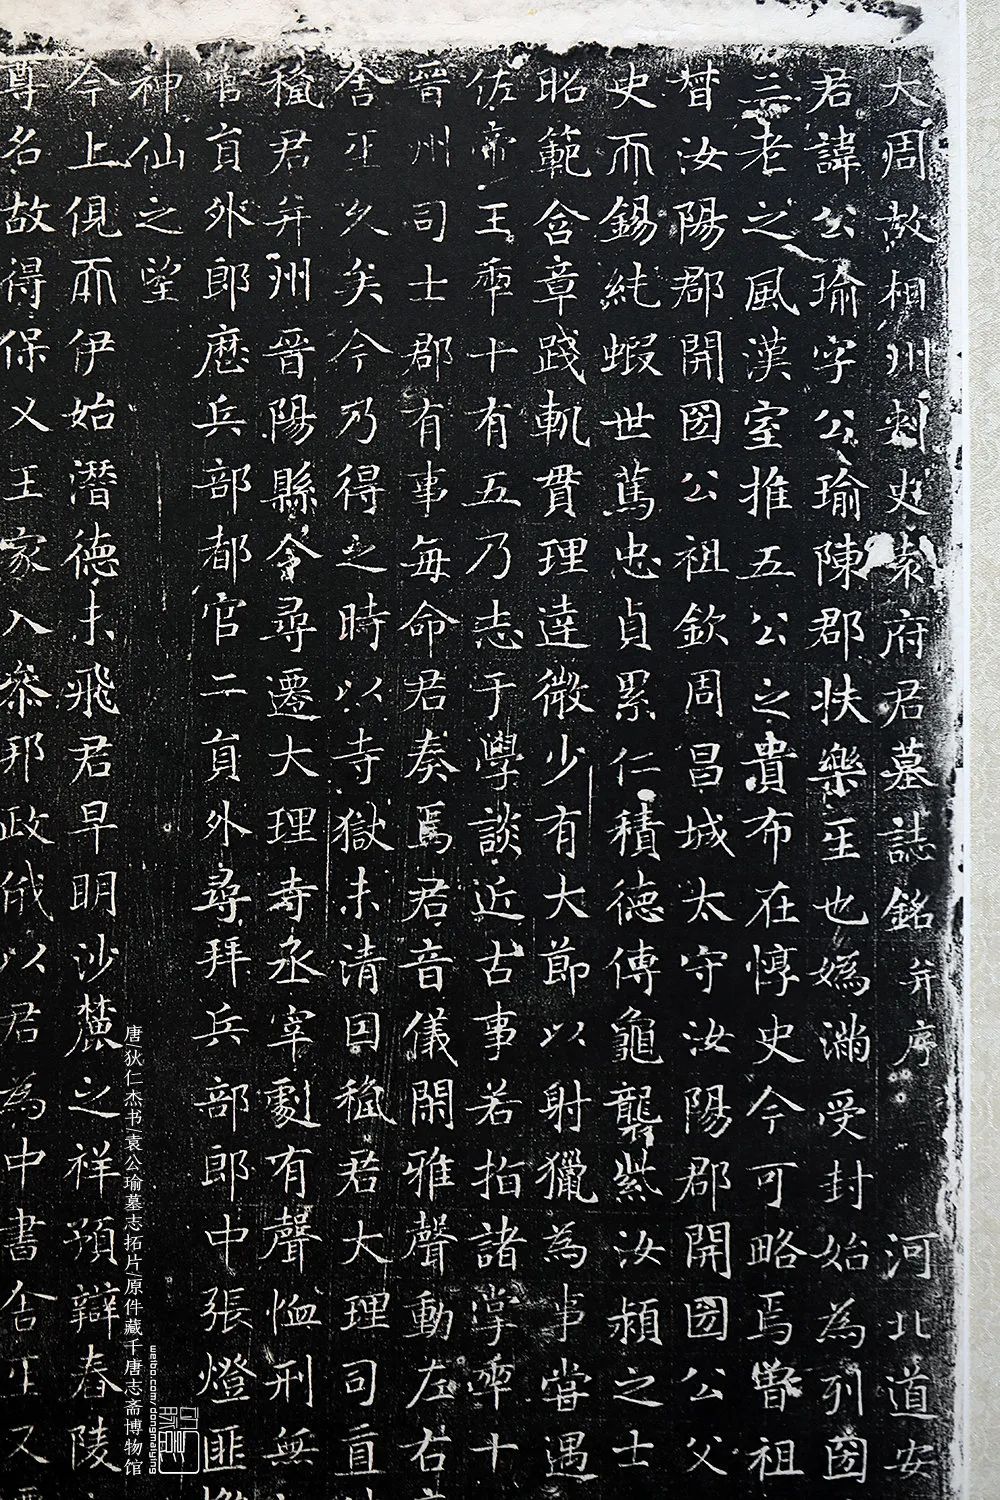 大周故相州刺史袁府君墓誌銘并序 河北道安
君諱公瑜字公瑜陳郡扶樂𤯔也嬀滿受封始為列圀
三老之風漢室推五公之貴布在惇史今可略焉曾祖
督汝陽郡開圀公祖欽周昌城太守汝陽郡開圀公父
史而錫純蝦世蔦忠貞累仁積德傳龜襲紫汝潁之士
昭範含章踐軌貫理達微少有大節以射獵為事嘗遇
佐帝王𠡦十有五乃志于學談近古事若指諸掌𠡦十
晉州司士郡有事每命君奏焉君音儀閑雅聲動左右
舍𤯔久矣今乃得之時以寺獄未清因𥠢君大理司直
𥠢君并州晉陽縣令尋遷大理寺丞宰劇有聲恤刑無
官員外郎歷兵部都官二員外尋拜兵部郎中張燈匪
神仙之望
今上俔而伊始潛德未飛君早明沙麓之祥預辯舂陵
尊名故得保乂王家入參邦政俄以君為中書舍𤯔又
唐/狄仁杰书/袁公瑜墓志拓片/原件藏千唐志斋博物馆
weibo.com/dongmaiying